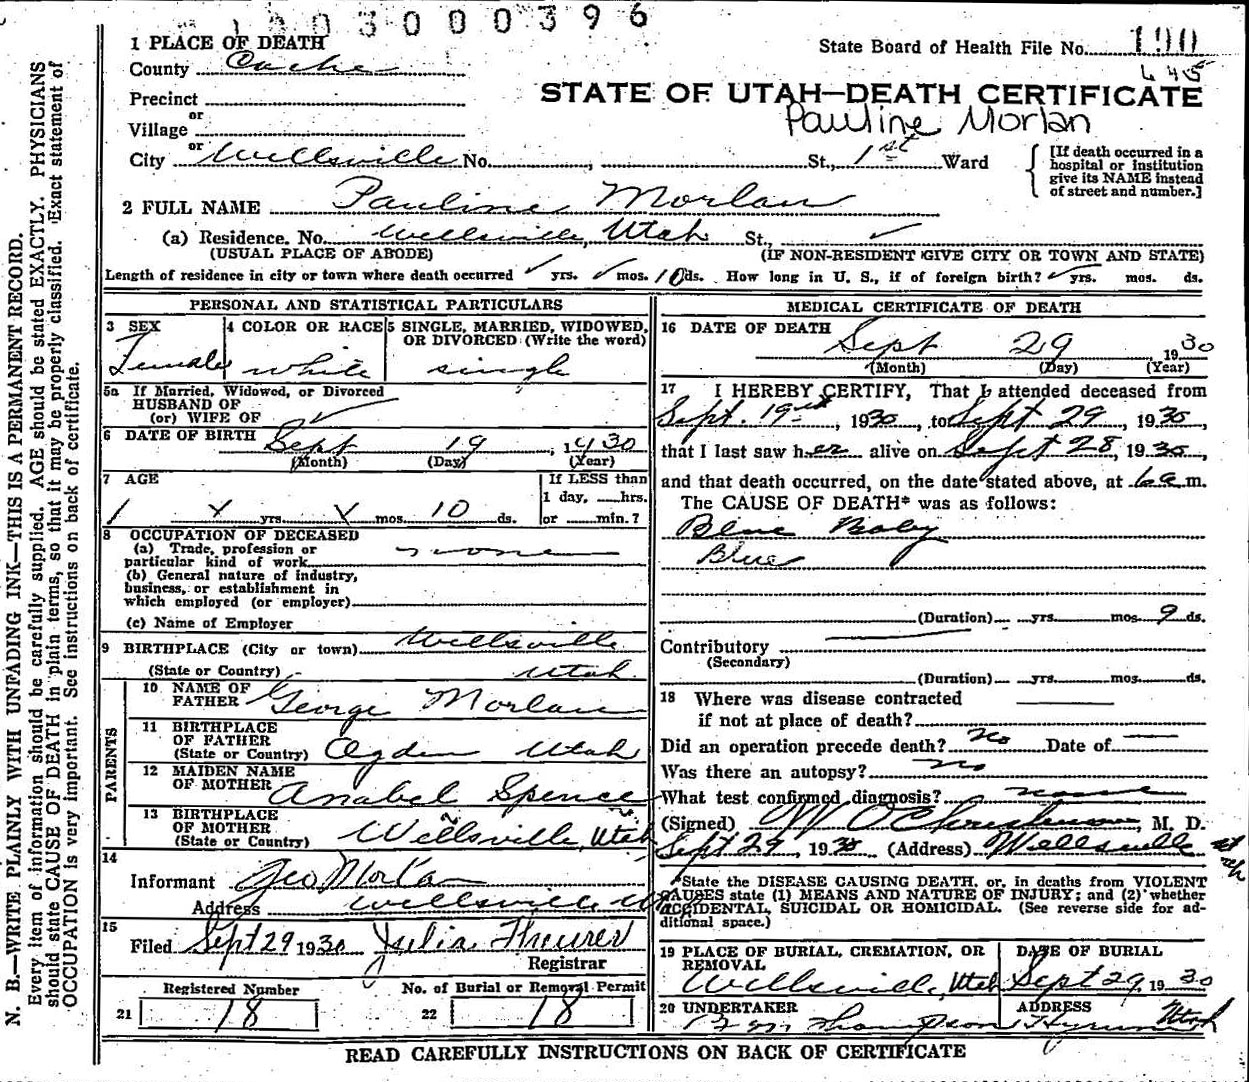 1003000396
1 PLACE OF DEATH
State Board of Health File No. 190
County Cache
645
Precinct
STATE OF UTAH—DEATH CERTIFICATE
Pauline Morlan
or
Village
or
City Wellsville No. , St., 1st Ward
[If death occurred in a hospital or institution give its NAME instead of street and number.]
2 FULL NAME Pauline Morlan
(a) Residence. No. Wellsville, Utah St., ✓
(USUAL PLACE OF ABODE) (IF NON-RESIDENT GIVE CITY OR TOWN AND STATE)
Length of residence in city or town where death occurred ✓ yrs. ✓ mos. 10 ds. How long in U. S., if of foreign birth? ✓ yrs. mos. ds.
PERSONAL AND STATISTICAL PARTICULARS
3 SEX 4 COLOR OR RACE 5 SINGLE, MARRIED, WIDOWED, OR DIVORCED (Write the word)
Female white single
5a If Married, Widowed, or Divorced
HUSBAND OF
(or) WIFE OF ✓
6 DATE OF BIRTH Sept 19, 1930
(Month) (Day) (Year)
7 AGE If LESS than
1 day, hrs.
yrs. mos. 10 ds. or min.?
8 OCCUPATION OF DECEASED
(a) Trade, profession or
particular kind of work none
(b) General nature of industry,
business, or establishment in
which employed (or employer)
(c) Name of Employer
9 BIRTHPLACE (City or town) Wellsville
(State or Country) Utah
PARENTS
10 NAME OF
FATHER George Morlan
11 BIRTHPLACE
OF FATHER
(State or Country) Ogden Utah
12 MAIDEN NAME
OF MOTHER Anabel Spence
13 BIRTHPLACE
OF MOTHER
(State or Country) Wellsville, Utah
14
Informant Geo Morlan
Address Wellsville
15
Filed Sept 29 1930 Julia Theurer
Registrar
Registered Number No. of Burial or Removal Permit
21 18 22 18
MEDICAL CERTIFICATE OF DEATH
16 DATE OF DEATH
Sept 29, 1930
(Month) (Day) (Year)
17 I HEREBY CERTIFY, That I attended deceased from
Sept. 19th, 1930, to Sept 29, 1930,
that I last saw her alive on Sept 28, 1930,
and that death occurred, on the date stated above, at 6 a m.
The CAUSE OF DEATH* was as follows:
Blue Baby
Blue
(Duration) yrs. mos. 9 ds.
Contributory
(Secondary)
(Duration) yrs. mos. ds.
18 Where was disease contracted
if not at place of death?
Did an operation precede death? No Date of
Was there an autopsy? No
What test confirmed diagnosis? none
(Signed) W O Christensen, M. D.
Sept 29, 1930 (Address) Wellsville Utah
*State the DISEASE CAUSING DEATH, or, in deaths from VIOLENT
CAUSES state (1) MEANS AND NATURE OF INJURY; and (2) whether
ACCIDENTAL, SUICIDAL OR HOMICIDAL. (See reverse side for ad-
ditional space.)
19 PLACE OF BURIAL, CREMATION, OR REMOVAL DATE OF BURIAL
Wellsville, Utah Sept 29, 1930
20 UNDERTAKER ADDRESS
Thompson Hyrum Utah
READ CAREFULLY INSTRUCTIONS ON BACK OF CERTIFICATE
N. B.—WRITE PLAINLY WITH UNFADING INK—THIS IS A PERMANENT RECORD.
Every item of information should be carefully supplied. AGE should be stated EXACTLY. PHYSICIANS
should state CAUSE OF DEATH in plain terms, so that it may be properly classified. Exact statement of
OCCUPATION is very important. See instructions on back of certificate.